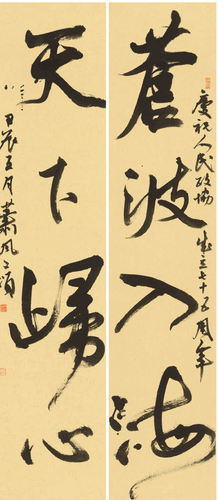 蒼波入海
慶祝人民政協成立七十五周年
天下歸心
甲辰五月蕭風之頌